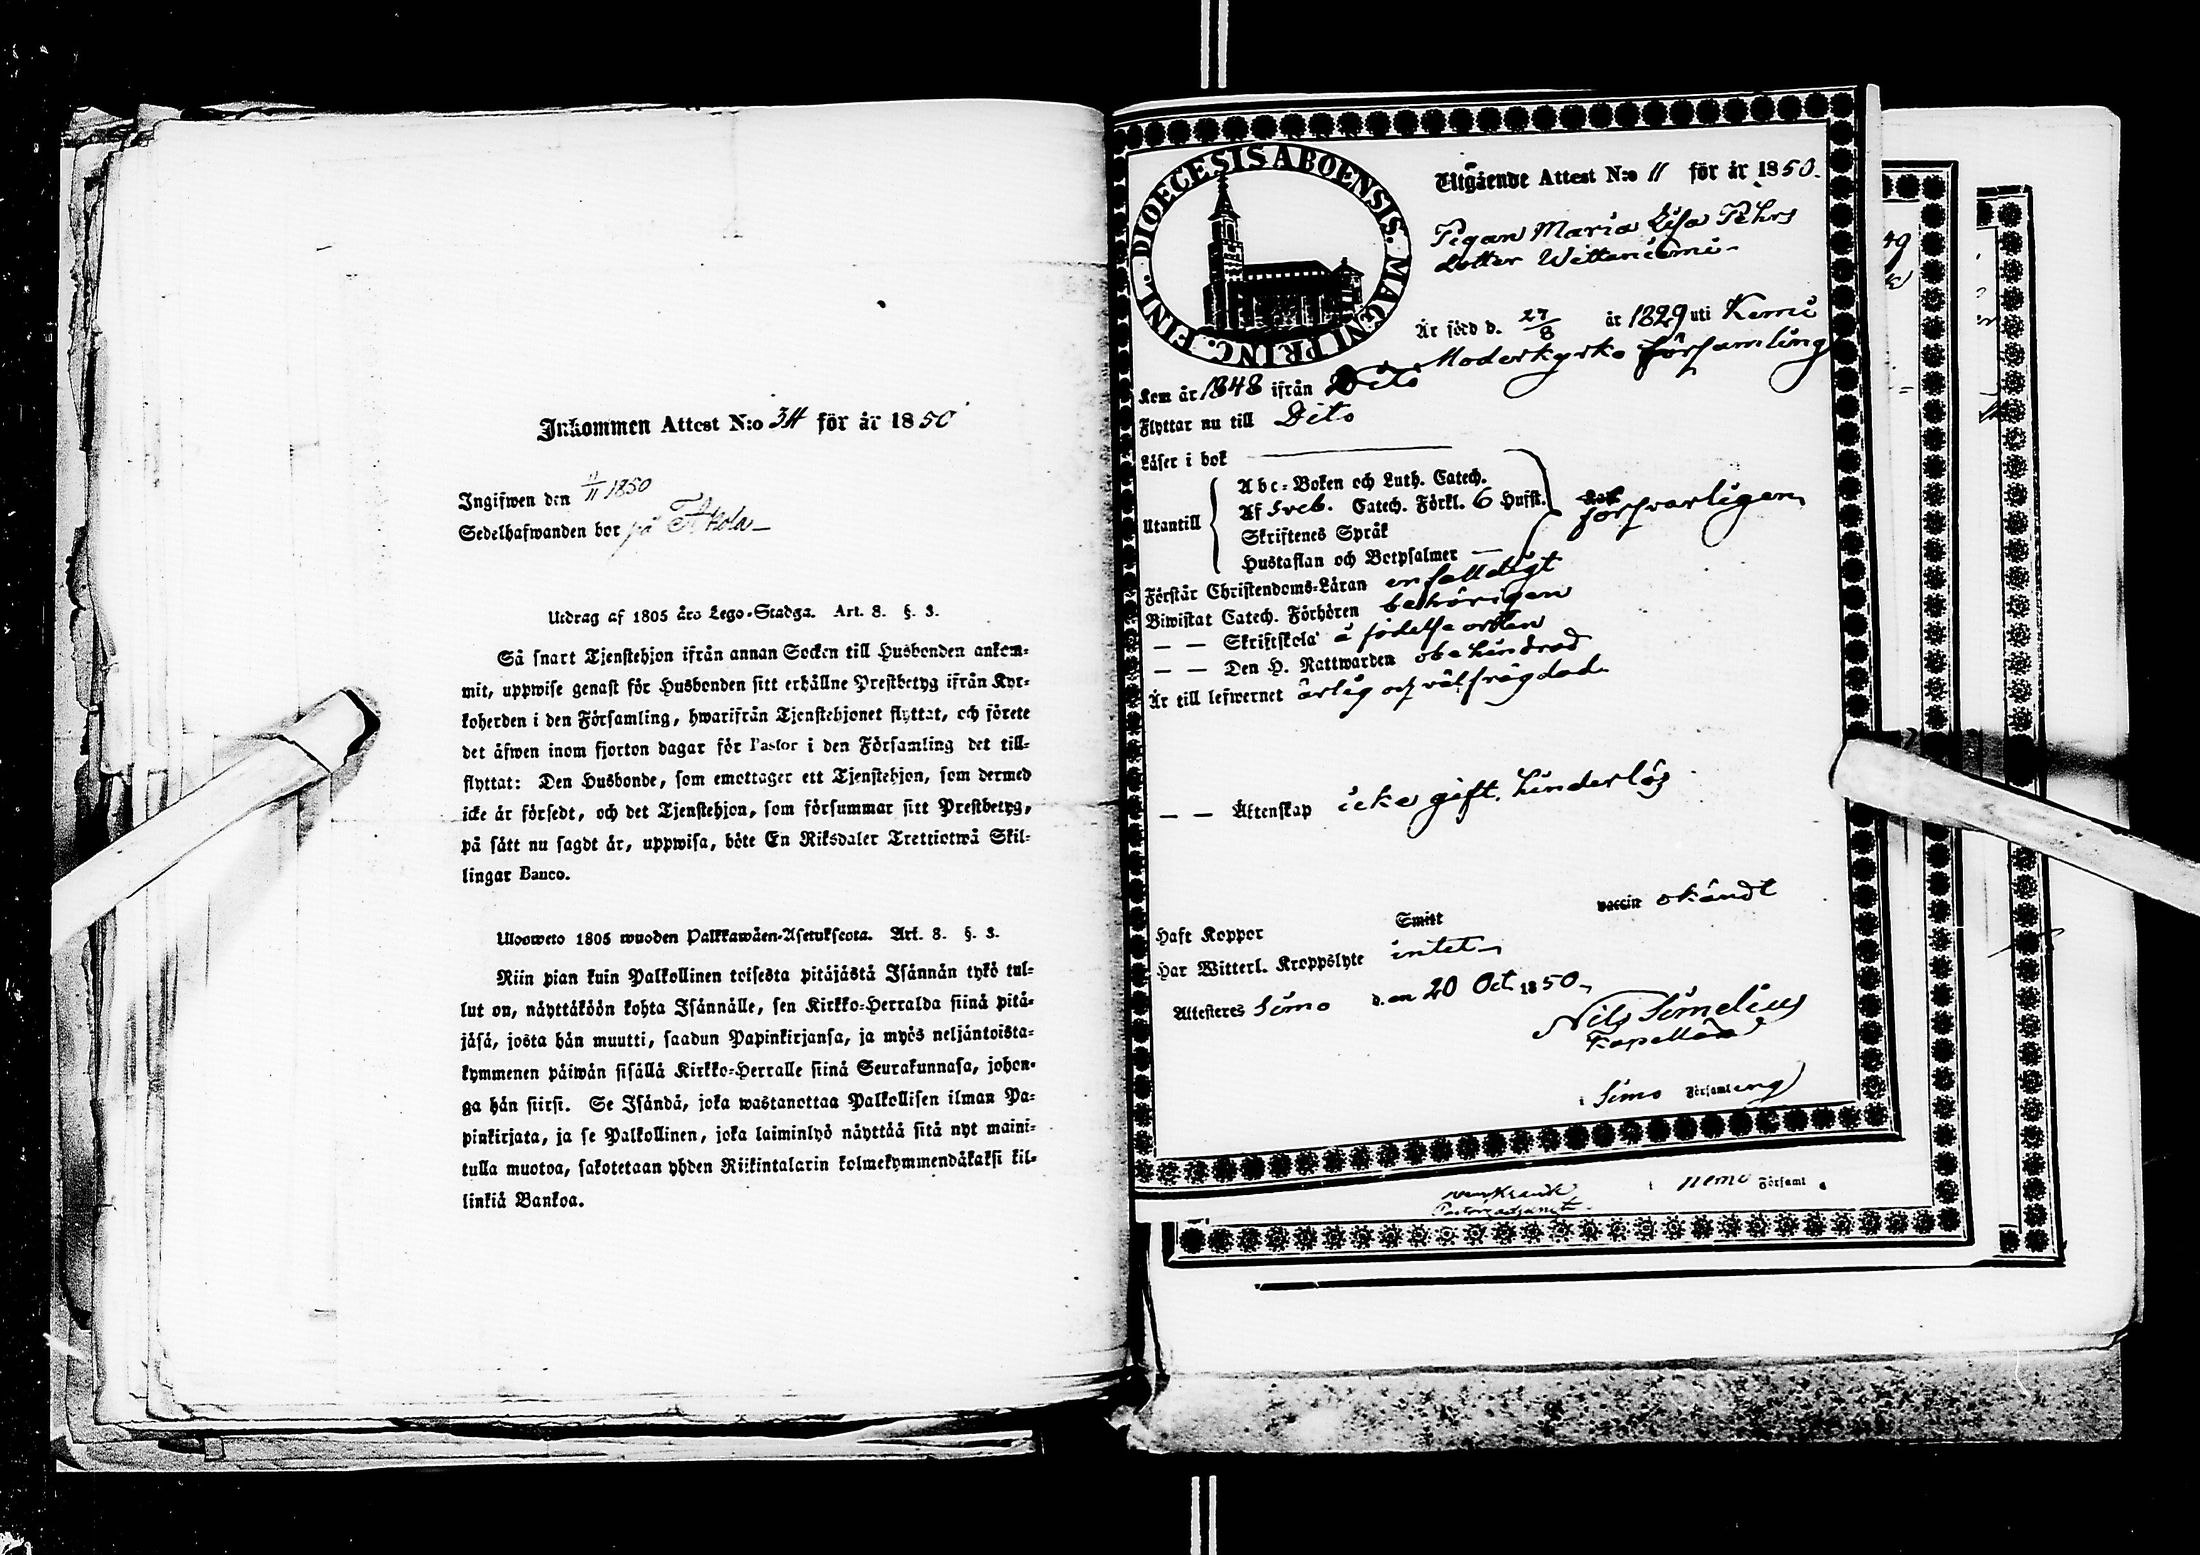 Inkommen Attest N:o 34 för år 1850
Ingifwen den 4/11 1850
Sedelhafwanden bor på
Utdrag af 1805 års Lego-Stadga. Art. 8. §. 3.
Så snart Tjenstehjon ifrån annan Socken till Husbonden ankom-
mit, uppwise genast för Husbonden sitt erhållne Prestbetyg ifrån Kyr-
koherden i den Församling, hwarifrån Tjenstehjonet flyttat, och förete
det äfwen inom fjorton dagar för Pastor i den Församling det till-
flyttat: Den Husbonde, som emottager ett Tjenstehjon, som dermed
icke är försedt, och det Tjenstehjon, som försummar sitt Prestbetyg,
på sätt nu sagdt är, uppwisa, böte En Riksdaler Trettiotwå Skil-
lingar Banco.
Ulosweto 1805 wuoden Palkkawäen-Asetuksesta. Art. 8. §. 3.
Niin pian kuin Palkollinen toisesta pitäjästä Isännän tykö tul-
lut on, näyttäköön kohta Isännälle, sen Kirkko-Herralda siinä pitä-
jäsä, josta hän muutti, saadun Papinkirjansa, ja myös neljäntoista-
kymmenen päiwän sisällä Kirkko-Herralle siinä Seurakunnasa, johon-
ga hän siirsi. Se Isändä, joka wastanottaa Palkollisen ilman Pa-
pinkirjata, ja se Palkollinen, joka laiminlyö näyttää sitä nyt maini-
tulla muotoa, sakotetaan yhden Riikintalarin kolmekymmendäkaksi kil-
linkiä Bankoa.
DIOECESIS ABOENSIS. MAGNI PRINC. FINL.
Utgående Attest N:o 11 för år 1850.
Pigan Maria Lisa Pehrs
dotter Wittaniemi
Är född d. 27/8 år 1829 uti Kemi
Moderkyrko församling
Kom år 1848 ifrån Dito
Flyttar nu till Dito
Läser i bok
Utantill
Abc-Boken och Luth. Catech.
Af Sveb. Catech. Förkl. 6 Hufst.
Skriftenes Språk
Hustaflan och Botpsalmer
försvarligen
Förstår Christendoms-Läran enfalldigt
Biwistat Catech. Förhören behörigen
— — Skriftskola å födelse orten
— — Den H. Nattwarden obehindrad
Är till lefwernet ärlig och välfrägdad
— — Äktenskap icke gift, hinderlös
Haft Koppor Smitt vaccin okändt
Har Witterl. Kroppslyte intet
Attesteres Simo d. en 20 Oct. 1850
Nils Simelius
Kapellan
i Simo Församling
i Församl